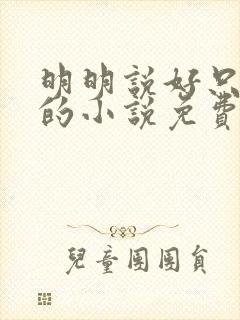 明明說好只
的小說免費
兒童團團員